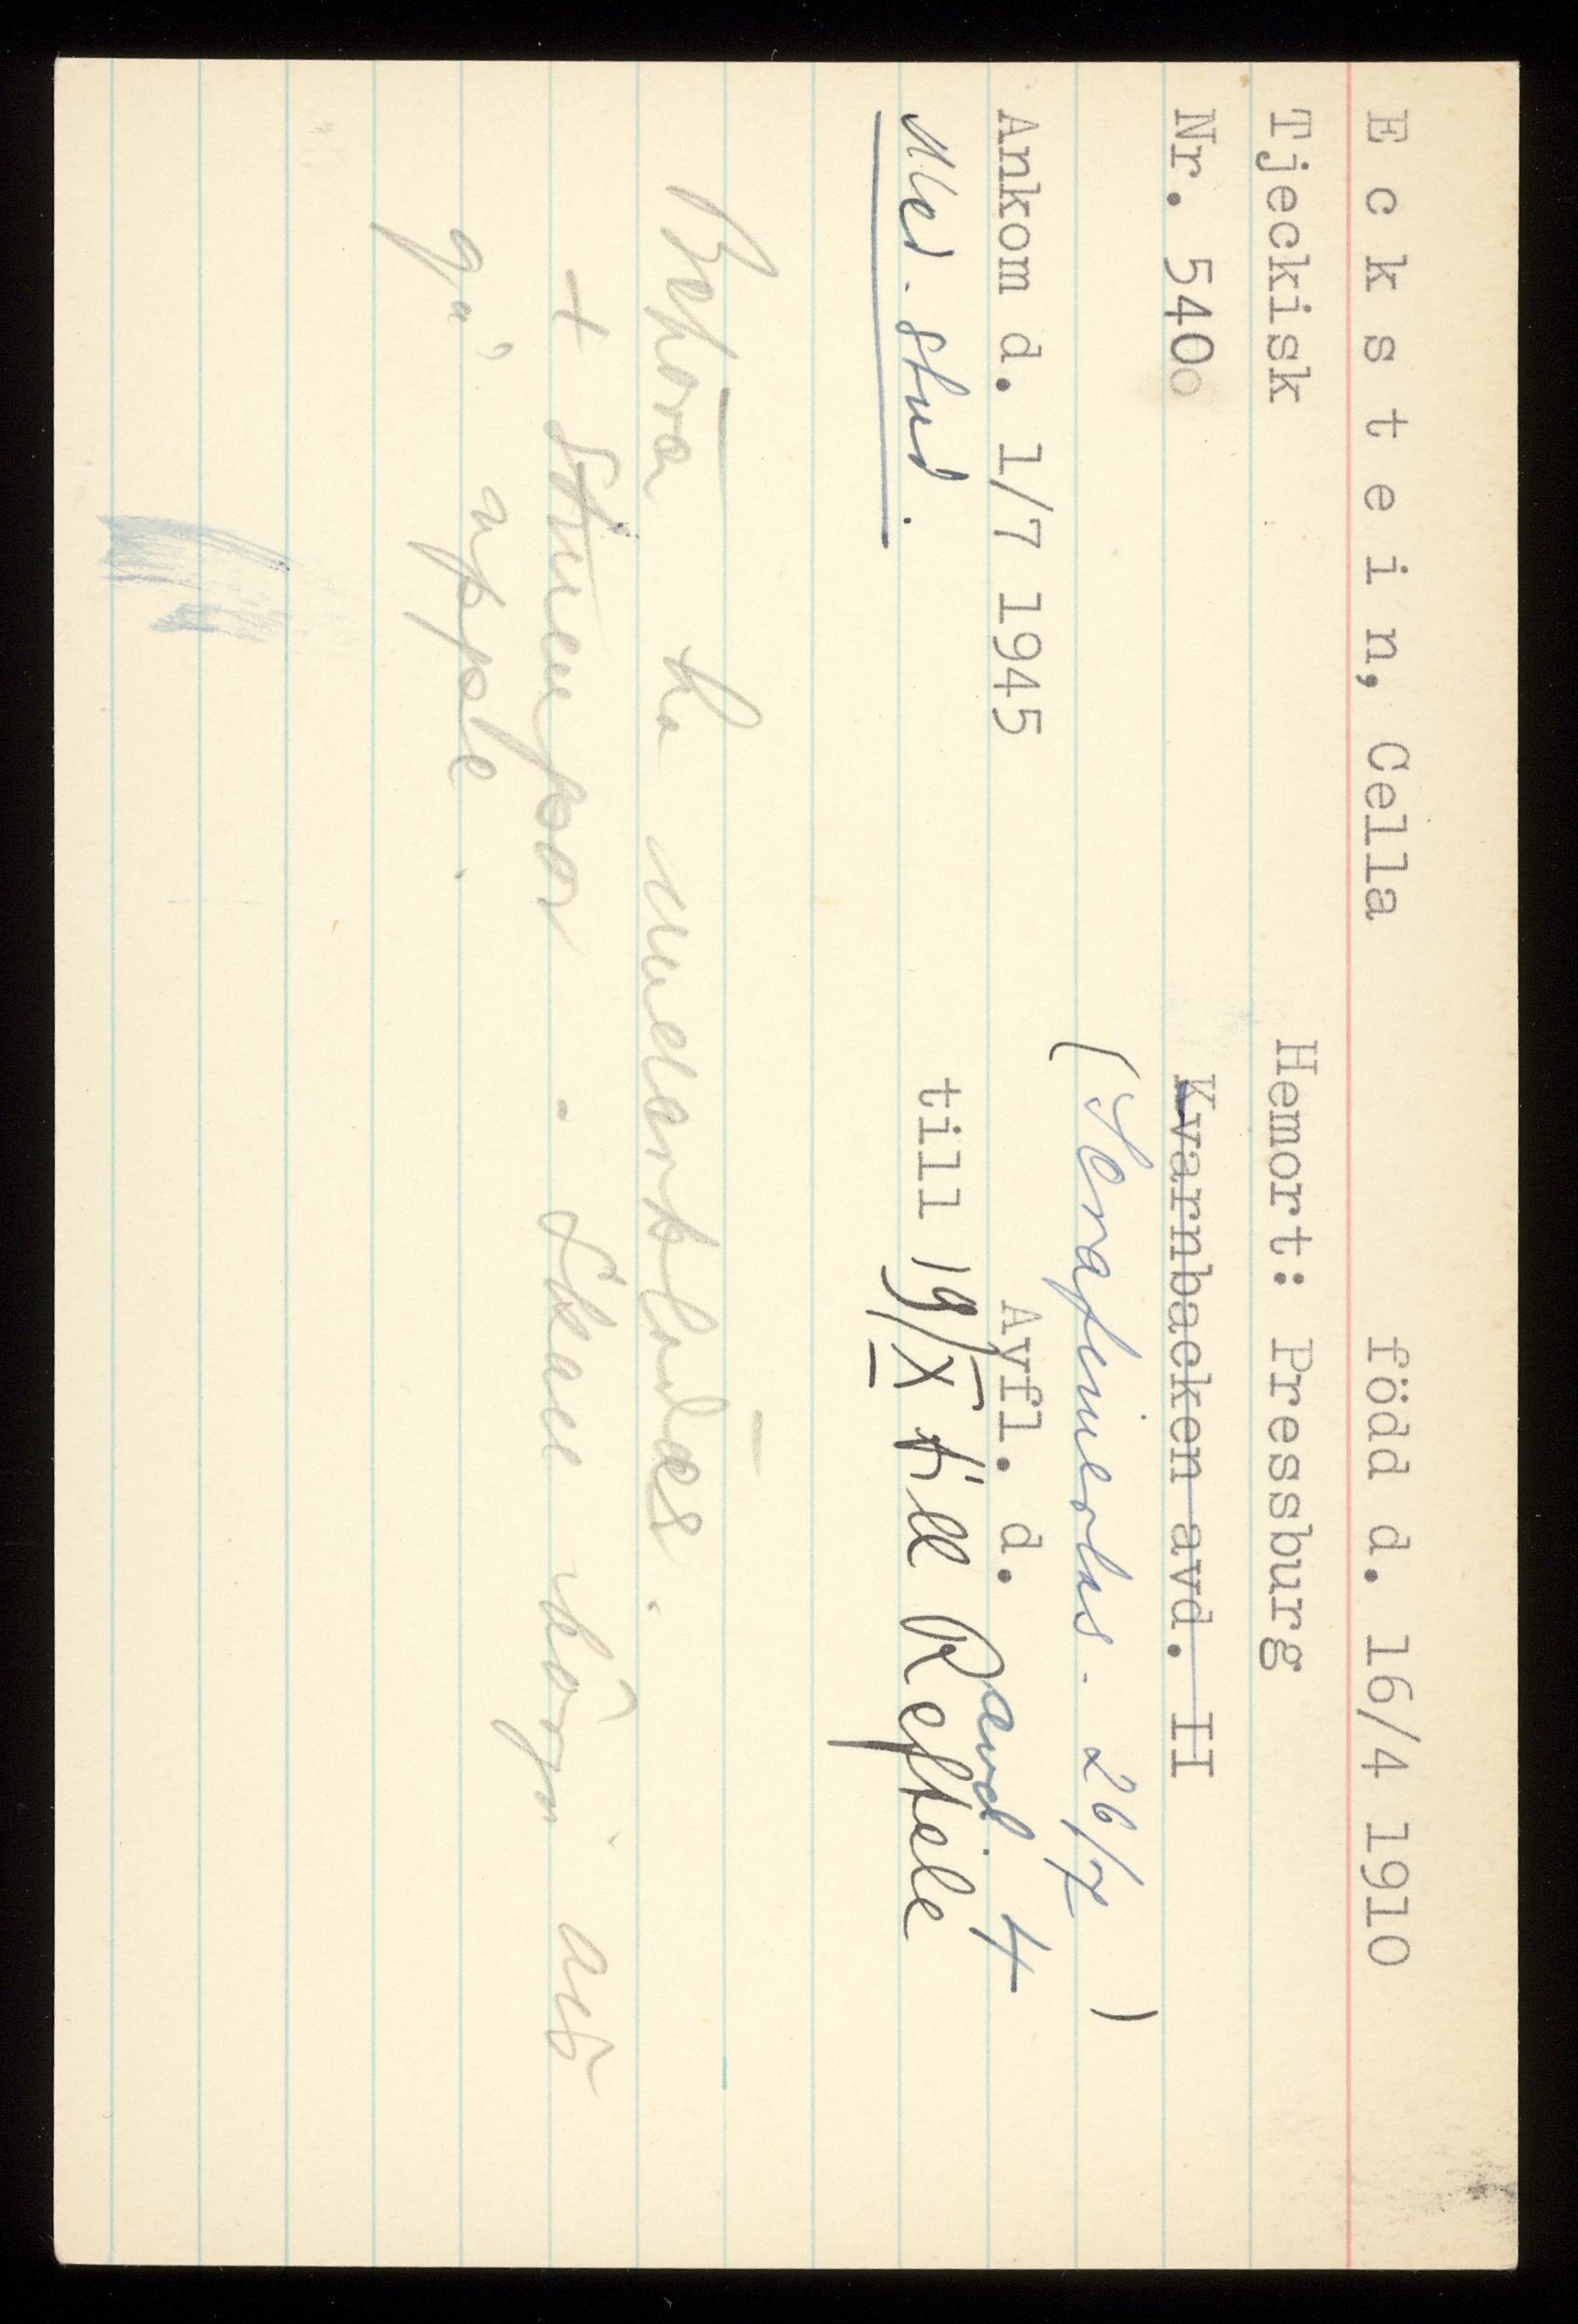 E c k s t e i n, Cella född d. 16/4 1910
Tjeckisk Hemort: Pressburg
Nr. 540 Kvarnbacken avd. II
(Serafimerlas. 26/7 )
Ankom d. 1/7 1945 Avfl. d. avd. 4
Med. stud. till 19/X till Reftele
Behöva ha underkläder.
+ strumpor. Skall börja att
gå uppe.